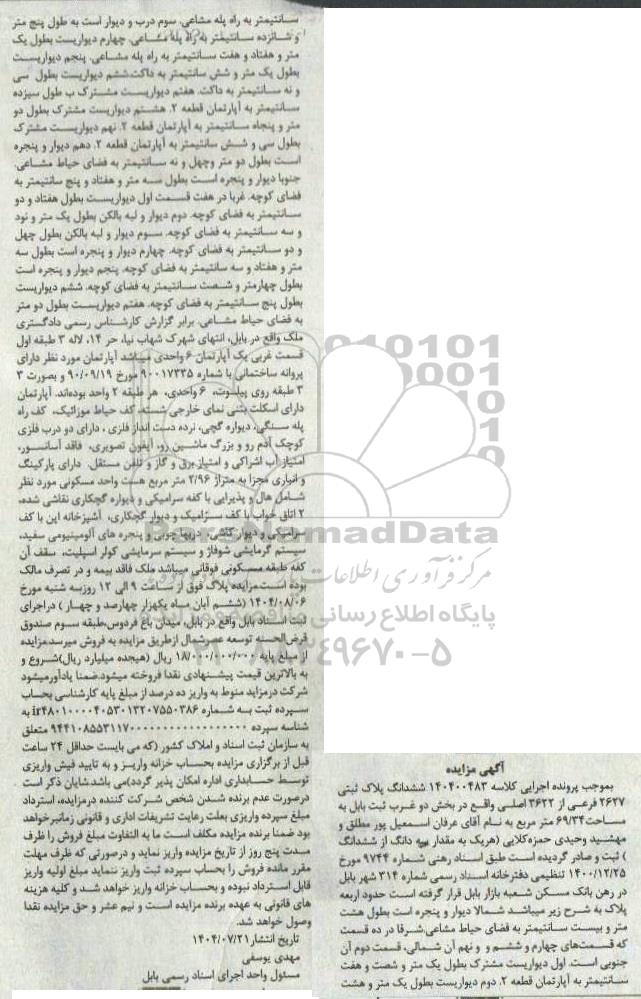 آگهی مزایده
بموجب پرونده اجرایی کلاسه ۱۴۰۴۰۰۴۸۳ ششدانگ پلاک ثبتی
۲۶۲۷ فرعی از ۳۶۲۲ اصلی واقع در بخش دو غرب ثبت بابل به
مساحت ۶۹/۳۴ متر مربع به نام آقای عرفان اسمعیل پور مطلق و
مهشید وحیدی حمزه‌کلایی (هریک به مقدار سه دانگ از ششدانگ
) ثبت و صادر گردیده است طبق اسناد رهنی شماره ۹۷۴۴ مورخ
۱۴۰۰/۱۲/۲۵ تنظیمی دفترخانه اسناد رسمی شماره ۳۱۴ شهر بابل
در رهن بانک مسکن شعبه بازار بابل قرار گرفته است حدود اربعه
پلاک به شرح زیر میباشد شمالا دیوار و پنجره است بطول هشت
متر و بیست سانتیمتر به فضای حیاط مشاعی.شرقا در ده قسمت
که قسمت‌های چهارم و ششم و و نهم آن شمالی، قسمت دوم آن
جنوبی است. اول دیواریست مشترک بطول یک متر و شصت و هفت
سانتیمتر به آپارتمان قطعه ۲. دوم دیواریست بطول یک متر و هشت
سانتیمتر به راه پله مشاعی. سوم درب و دیوار است به طول پنج متر
و شانزده سانتیمتر به راه پله مشاعی. چهارم دیواریست بطول یک
متر و هفتاد و هفت سانتیمتر به راه پله مشاعی. پنجم دیواریست
بطول یک متر و شش سانتیمتر به داکت.ششم دیواریست بطول سی
و نه سانتیمتر به داکت. هفتم دیواریست مشترک ب طول سیزده
سانتیمتر به آپارتمان قطعه ۲. هشتم دیواریست مشترک بطول دو
متر و پنجاه سانتیمتر به آپارتمان قطعه ۲. نهم دیواریست مشترک
بطول سی و شش سانتیمتر به آپارتمان قطعه ۲. دهم دیوار و پنجره
است بطول دو متر وچهل و نه سانتیمتر به فضای حیاط مشاعی.
جنوبا دیوار و پنجره است بطول سه متر و هفتاد و پنج سانتیمتر به
فضای کوچه. غربا در هفت قسمت اول دیواریست بطول هفتاد و دو
سانتیمتر به فضای کوچه. دوم دیوار و لبه بالکن بطول یک متر و نود
و سه سانتیمتر به فضای کوچه. سوم دیوار و لبه بالکن بطول چهل
و دو سانتیمتر به فضای کوچه. چهارم دیوار و پنجره است بطول سه
متر و هفتاد و سه سانتیمتر به فضای کوچه. پنجم دیوار و پنجره است
بطول چهارمتر و شصت سانتیمتر به فضای کوچه. ششم دیواریست
بطول پنج سانتیمتر به فضای کوچه. هفتم دیواریست بطول دو متر
به فضای حیاط مشاعی. برابر گزارش کارشناس رسمی دادگستری
ملک واقع در بابل، انتهای شهرک شهاب نیا، حر ۱۴، لاله ۳ طبقه اول
قسمت غربی یک آپارتمان ۶ واحدی میباشد آپارتمان مورد نظر دارای
پروانه ساختمانی با شماره ۹۰۰۱۷۳۳۵ مورخ ۹۰/۰۹/۱۹ و بصورت ۳
۳ طبقه روی پیلوت، ۶ واحدی، هر طبقه ۲ واحد بوده‌اند. آپارتمان
دارای اسکلت بتنی نمای خارجی شسته، کف حیاط موزائیک، کف راه
پله سنگی، دیواره گچی، نرده دست انداز فلزی ، دارای دو درب فلزی
کوچک آدم رو و بزرگ ماشین رو، آیفون تصویری، فاقد آسانسور،
امتیاز آب اشراکی و امتیاز برق و گاز و تلفن مستقل. دارای پارکینگ
و انباری مجزا به متراژ ۲/۹۶ متر مربع هست واحد مسکونی مورد نظر
شامل هال و پذیرایی با کف سرامیکی و دیواره گچکاری نقاشی شده،
۲ اتاق خواب با کف سرامیک و دیوار گچکاری، آشپزخانه اپن با کف
سرامیکی و دیوار کاشی، دربها چوبی و پنجره های آلومینیومی سفید،
سیستم گرمایشی شوفاژ و سیستم سرمایشی کولر اسپلیت، سقف آن
کفه طبقه مسکونی فوقانی میباشد ملک فاقد بیمه و در تصرف مالک
بوده است.مزایده پلاک فوق از ساعت ۹ الی ۱۲ روزسه شنبه مورخ
۱۴۰۴/۰۸/۰۶ (ششم آبان ماه یکهزار چهارصد و چهار ) دراجرای
ثبت اسناد بابل واقع در بابل، میدان باغ فردوس،طبقه سوم صندوق
قرض‌الحسنه توسعه عصرشمال ازطریق مزایده به فروش میرسد.مزایده
از مبلغ پایه ۱۸/۰۰۰/۰۰۰/۰۰۰ ریال (هیجده میلیارد ریال)شروع و
به بالاترین قیمت پیشنهادی نقدا فروخته میشود.ضمنا یادآورمیشود
شرکت درمزاید منوط به واریز ده درصد از مبلغ پایه کارشناسی بحساب
سپرده ثبت به شماره ir۴۸۰۱۰۰۰۰۴۰۵۳۰۱۳۲۰۷۵۵۰۳۸۶ به
شناسه سپرده متعلق
به سازمان ثبت اسناد و املاک کشور (که می بایست حداقل ۲۴ ساعت
قبل از برگزاری مزایده بحساب خزانه واریز و به تایید فیش واریزی
توسط حسابداری اداره امکان پذیر گردد)می باشد.شایان ذکر است
درصورت عدم برنده شدن شخص شرکت کننده درمزایده، استرداد
مبلغ سپرده واریزی بعلت رعایت تشریفات اداری و قانونی زمانبرخواهد
بود ضمنا برنده مزایده مکلف است ما به التفاوت مبلغ فروش را ظرف
مدت پنج روز از تاریخ مزایده واریز نماید و درصورتی که ظرف مهلت
مقرر مانده فروش را بحساب سپرده ثبت واریز ننماید مبلغ اولیه واریز
قابل استرداد نبوده و بحساب خزانه واریز خواهد شد و کلیه هزینه
های قانونی به عهده برنده مزایده است و نیم عشر و حق مزایده نقدا
وصول خواهد شد.
تاریخ انتشار ۱۴۰۴/۰۷/۲۱
مهدی یوسفی
مسئول واحد اجرای اسناد رسمی بابل
ParsNamadData
پایگاه اطلاع رسانی